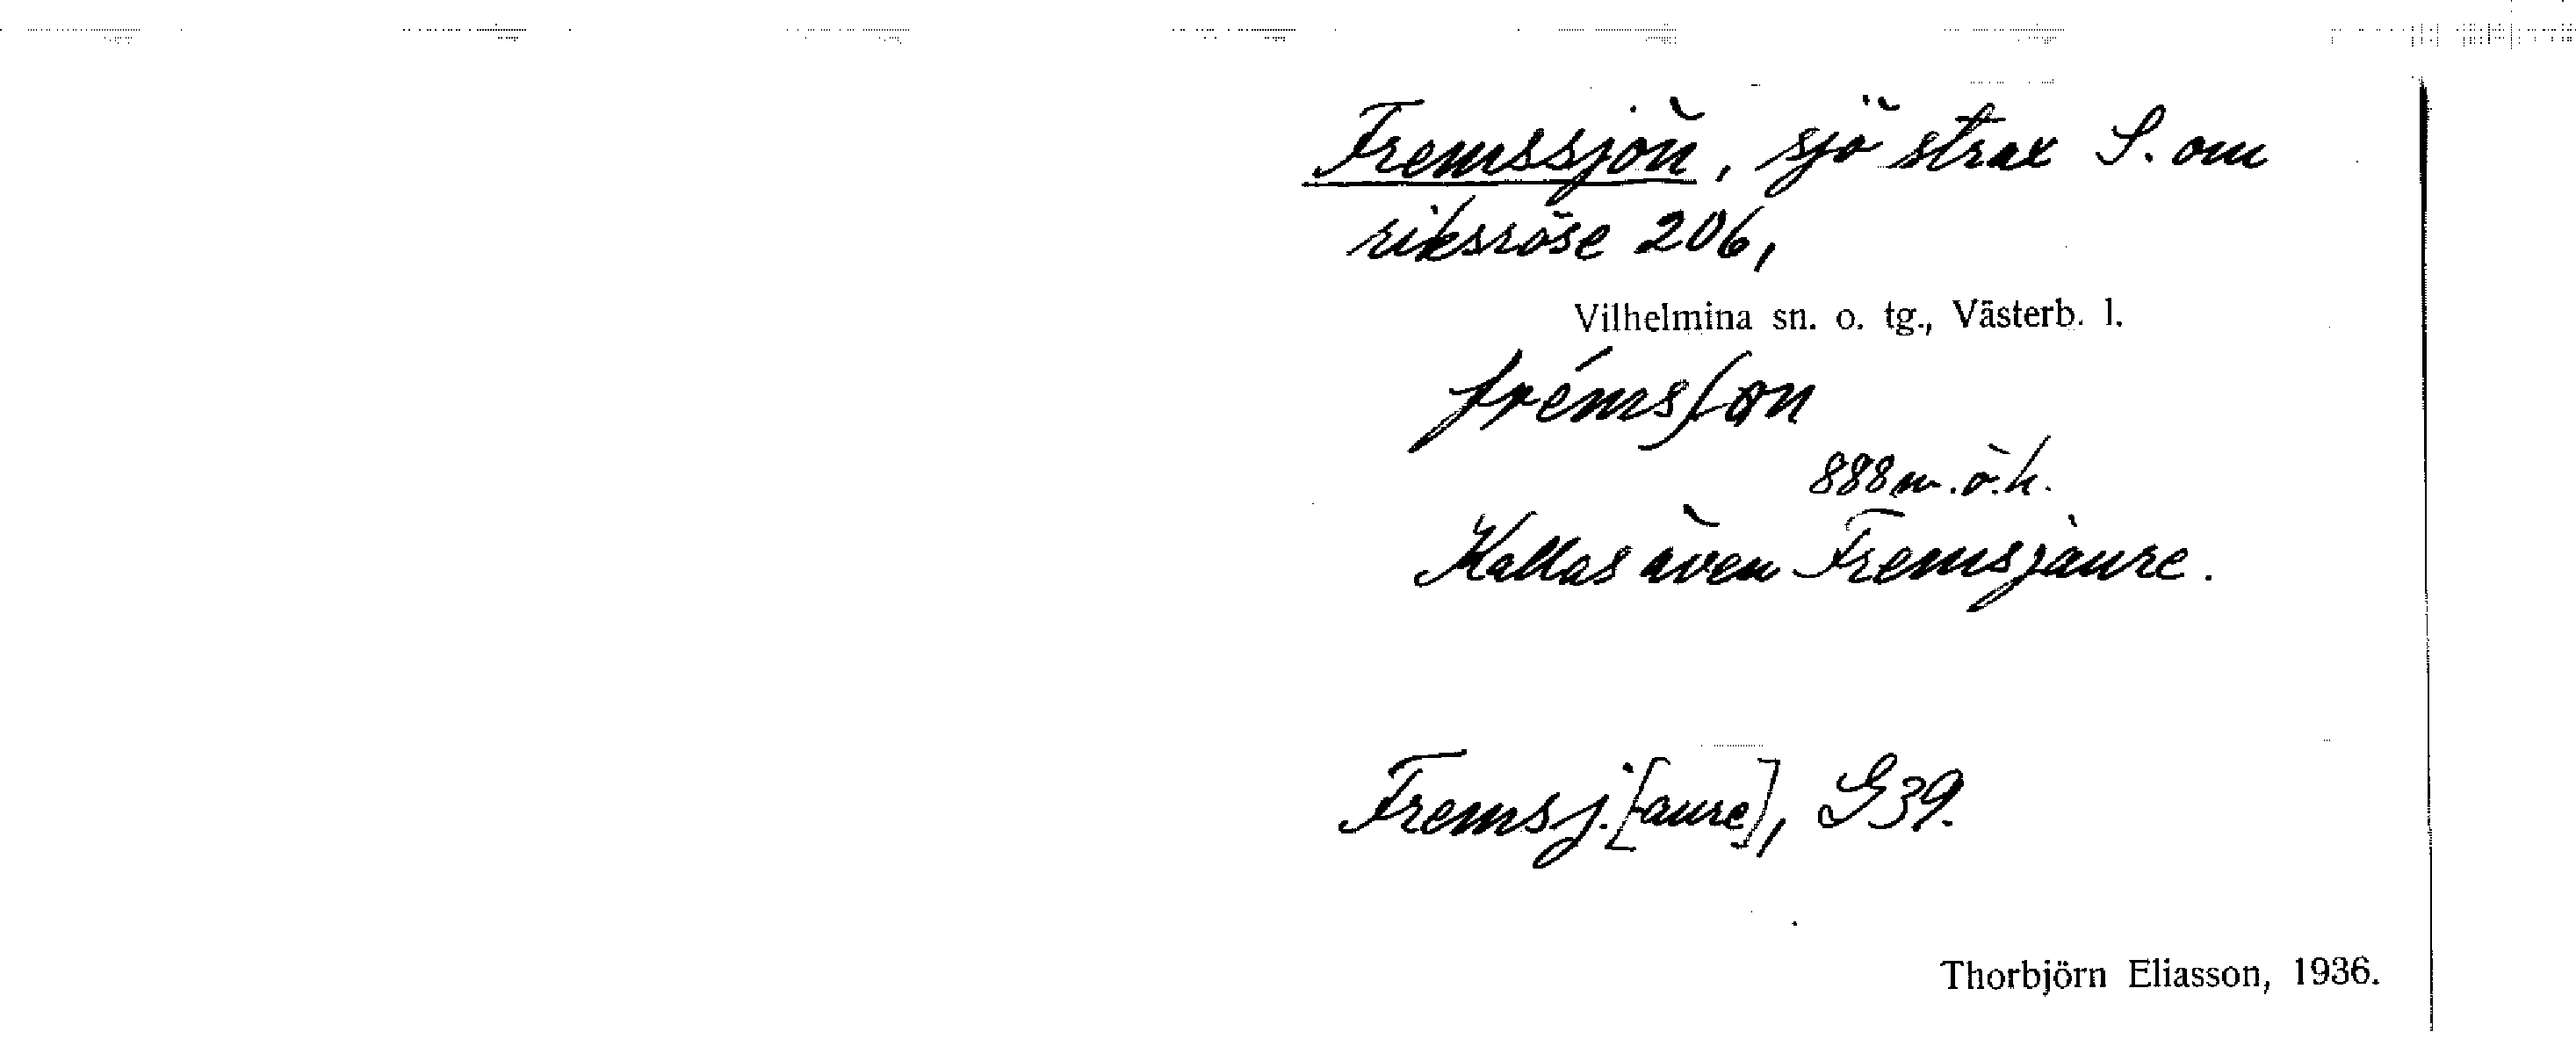 Fremssjön, sjö strax S. om
riksröse 206,
Vilhelmina sn. o. tg., Västerb. l.
frémsʃøn
888 m. ö. h.
Kallas även Fremsjaure.
Fremsj.[aure], G39.
Thorbjörn Eliasson, 1936.